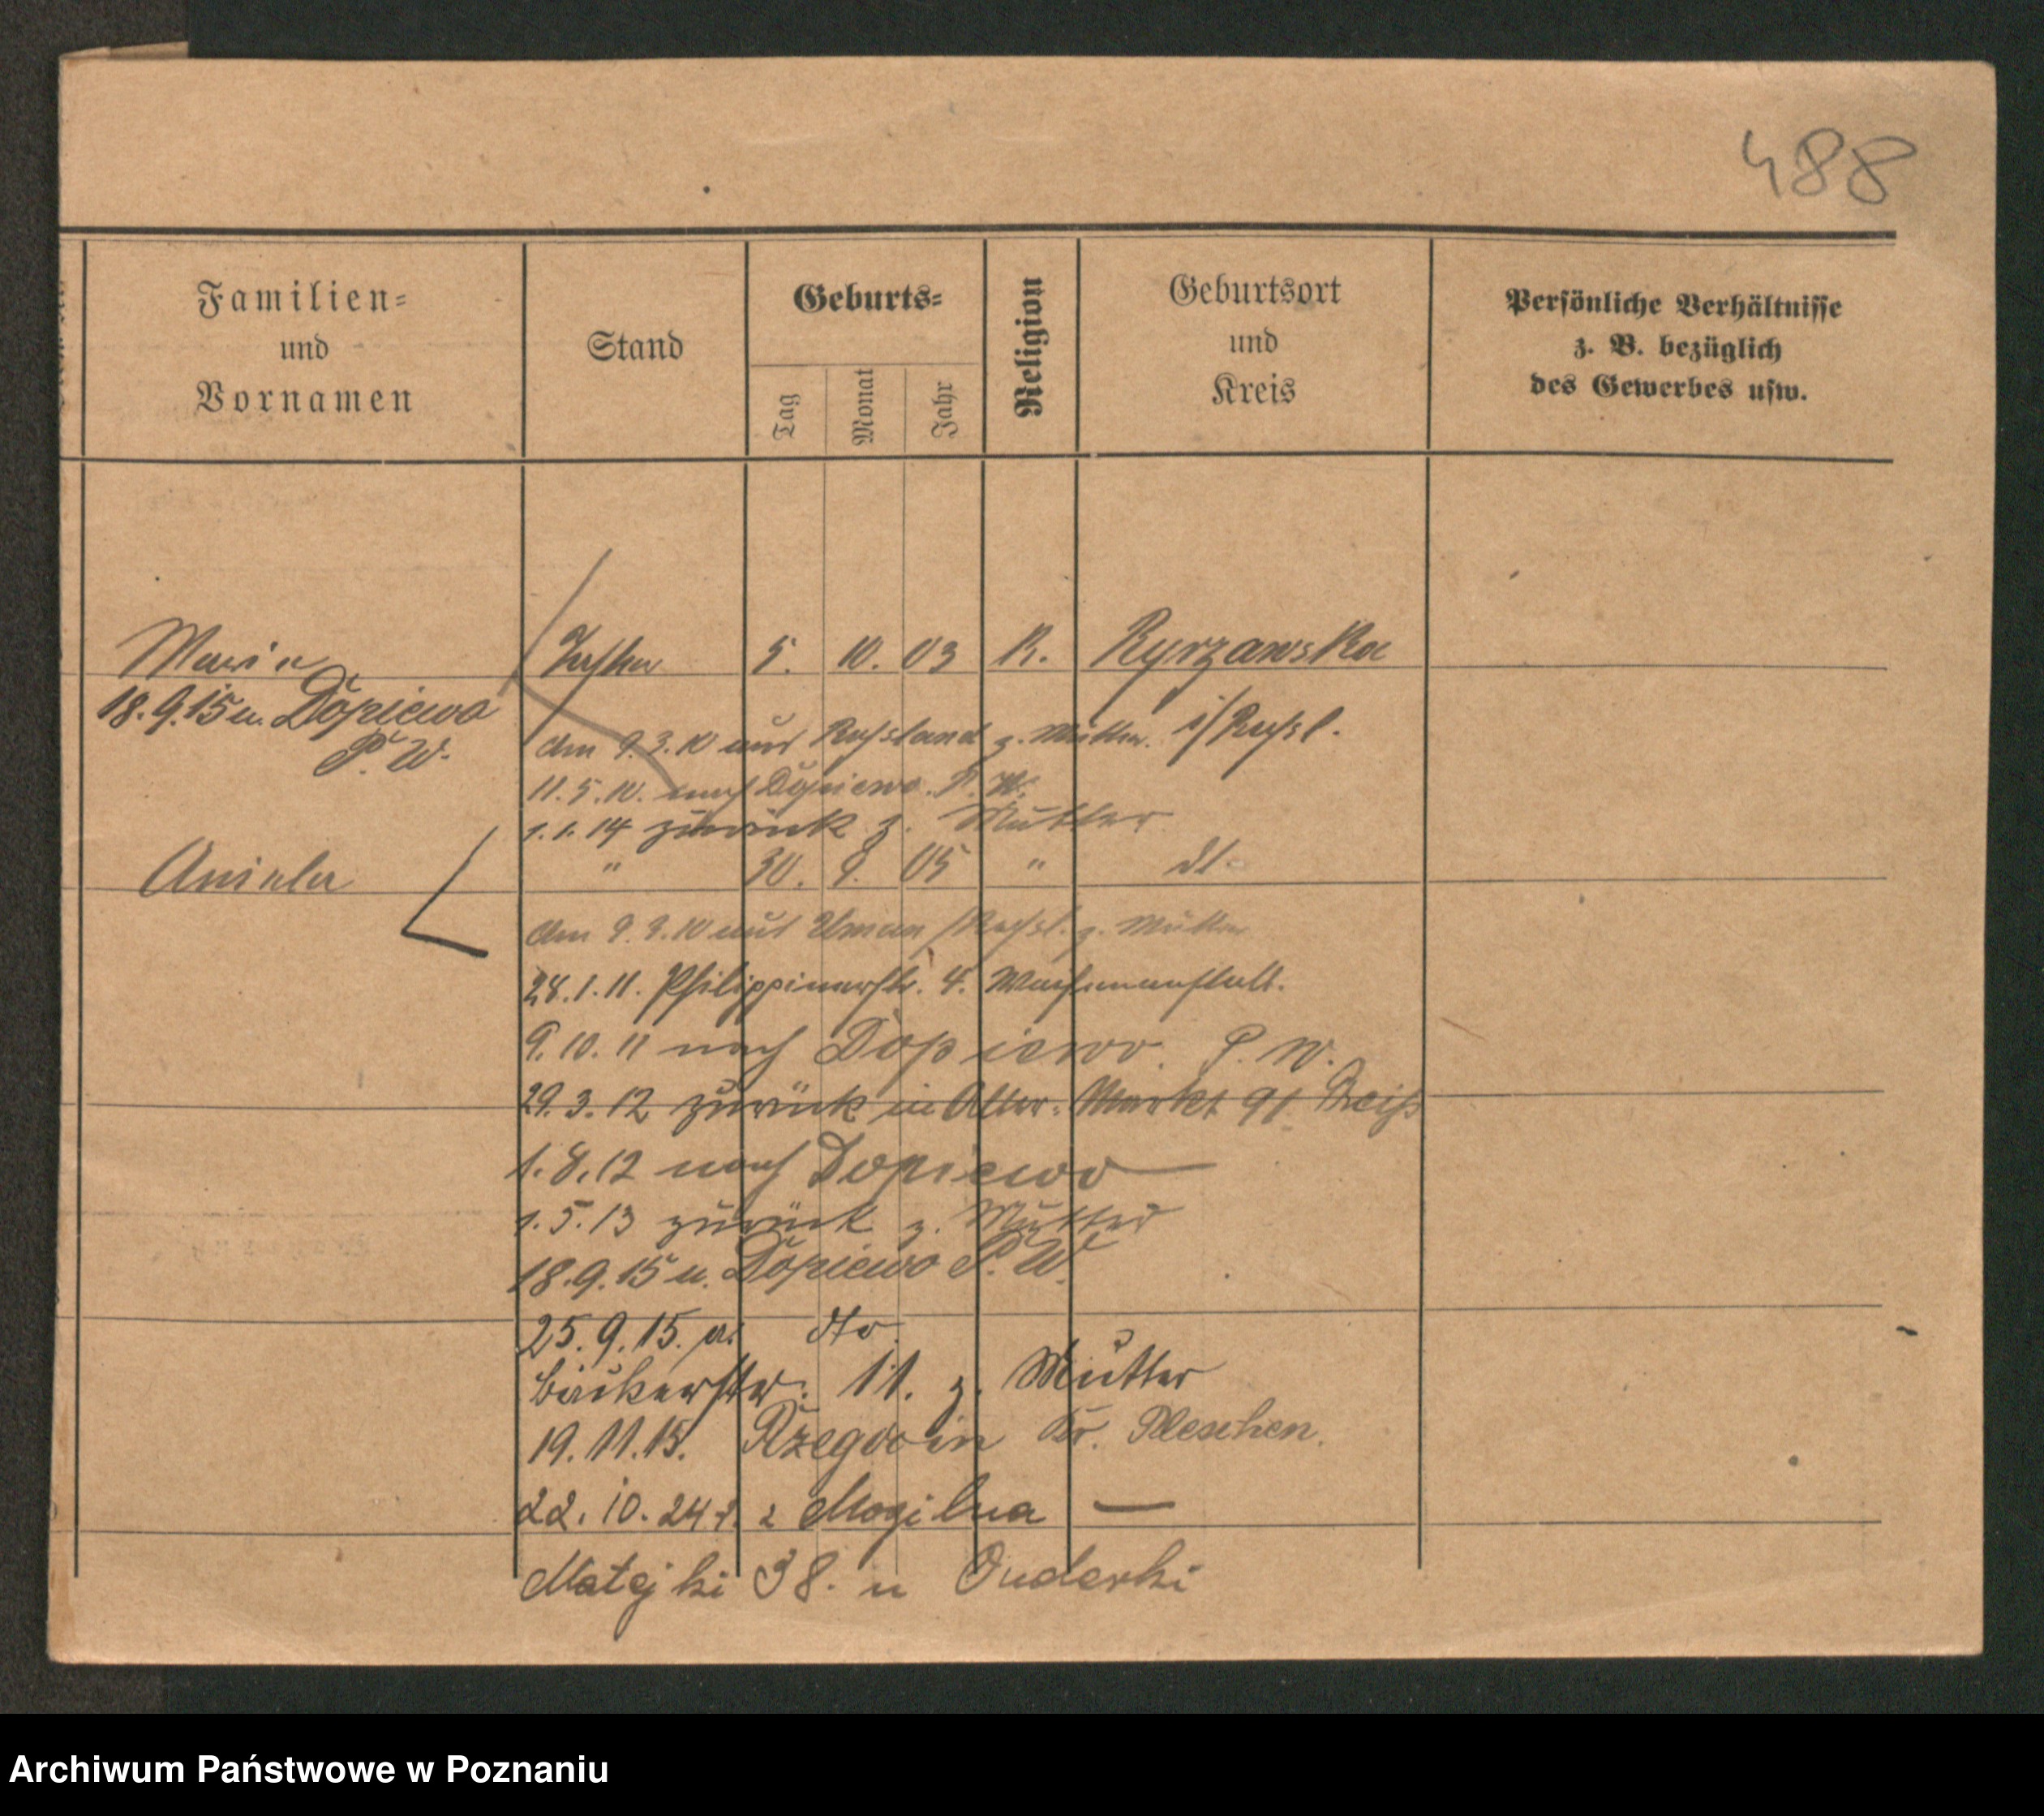 488
Familien=
und
Vornamen
Stand
Geburts=
Tag
Monat
Jahr
Religion
Geburtsort
und
Kreis
Persönliche Verhältnisse
z. B. bezüglich
des Gewerbes usw.
Maria Tochter 5. 10. 03 R. Ryrzawska
18.9.15 n. Dopiewo
P. W.
am 9.3.10 aus Russland z. Mutter i/Russl.
11.5.10. nach Dopiewo. P. W.
1.1.14 zurück z. Mutter
Aniela " 30. 9. 05 " dt.
am 9.3.10 aus Uman /Russl. z. Mutter
28.1.11. Philippinerstr. 4. Waisenanstalt.
9.10.11 nach Dopiewo. P. W.
29.3.12 zurück in Alter Markt 91
1.8.12 nach Dopiewo
1.5.13 zurück z. Mutter
18.9.15 n. Dopiewo P. W.
25.9.15. a. dto.
Bäckerstr. 11. z. Mutter
19.11.15. Kr. Pleschen.
22.10.24 z Mogilna —
Matejki 38. u
Archiwum Państwowe w Poznaniu